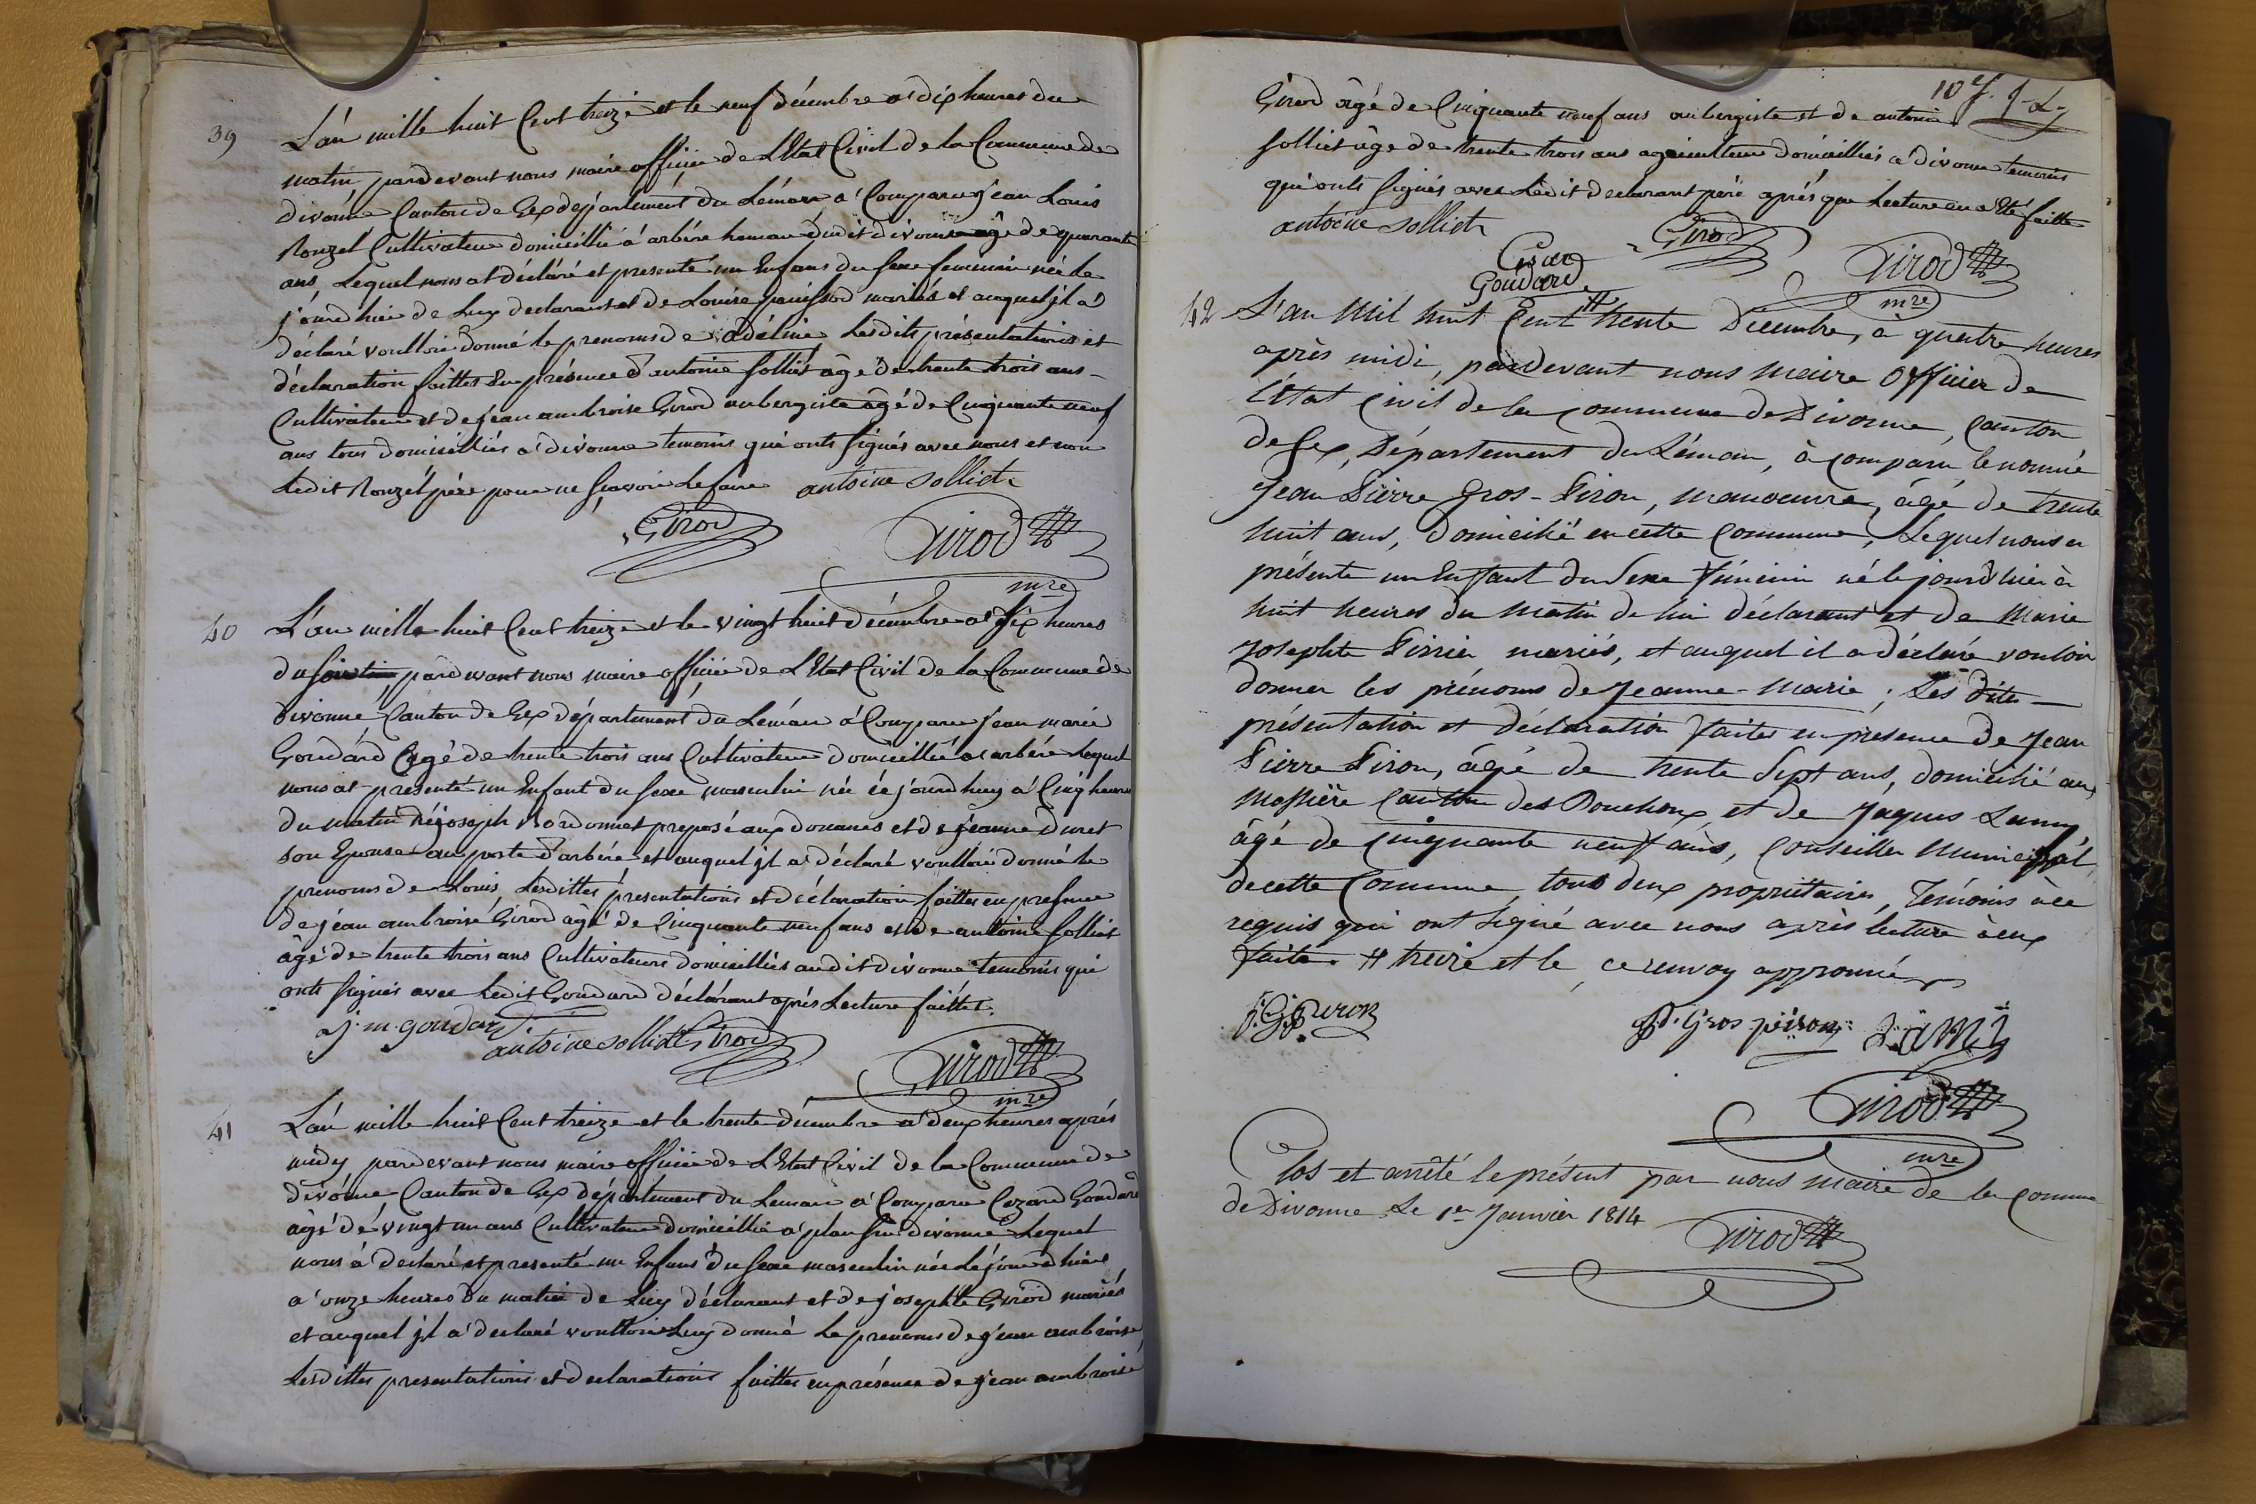 39
L'an mille huit Cent treize et le neuf décembre a dix heures du
matin, pardevant nous maire officie de L'Etat Civil de la Commune de
divonne Canton de Gex département du Léman a Comparu jean Louis
Rouzel Cultivateur domicillié a arbére hameau dudit divonne âgé de quarante
ans, Lequel nous at déclaré et presenté un Enfans du sexe feminin née le
jourd hier de Luy declarant et de Louise mariés et auquel jl a
déclaré voulloir donné le prenoms de adéline Lesdits présentations et
déclaration faittes En présence d'antoine solliet âgé de trente trois ans
Cultivateur et de jean ambroise Girod aubergiste âgé de Cinquante neuf
ans tous domicilliés a divonne temoins qui onts signés avec nous et non
Ledit Rouzel père pour ne sçavoir Le faire antoine solliet
Girod Girod
mre
40
L'an mille huit Cent treize et le vingt huit décembre a six heures
du soir pardevant nous maire officie de L'Etat Civil de la Commune de
divonne, Canton de Gex département du Léman a Comparu jean marie
Goudard âgé de trente trois ans Cultivateur domicillié a arbére Lequel
nous at presenté un Enfant du sexe masculin née ce jourdhuy a Cinq heures
du matin de joseph Bordonnet preposé aux douanes et de jeanne duret
son Epouse au poste d'arbére et auquel jl a déclaré voulloir donné le
prenoms de Louis Lesdittes presentations et déclaration faittes en presence
de jean ambroise Girod âgé de Cinquante neuf ans et de antoine solliet
âgé de trente trois ans Cultivateurs domicilliés audit divonne temoins qui
onts signés avec Ledit Goudard déclarant après Lecture faitte.
j. m. goudard antoine solliet Girod
Girod
mre
41
L'an mille huit Cent treize et le trente décembre a deux heures après
midy pardevant nous maire officie de L'Etat Civil de la Commune de
divonne Canton de Gex département du Leman a Comparu Cezard Goudard
âgé de vingt un ans Cultivateur domicillié a plan sur divonne Lequel
nous a declaré et presenté un Enfans du sexe masculin née Le jourd hier
a onze heures du matin de Luy déclarant et de josephte Girod mariés
et auquel jl a declaré voulloir Luy donné Le prenoms de jean ambroise
Lesdittes presentations et declarations faittes en présence de jean ambroise
107.
Girod âgé de Cinquante neuf ans aubergiste et de antoine
solliet âge de trente trois ans agriculteur domicilliés a divonne temoins
qui onts signés avec Ledit declarant père après que Lecture en a Eté faitte
antoine solliet
César
Goudard
Girod
Girod
mre
42
L'an Mil huit Cent # trente Décembre, à quatre heures
après midi, pardevant nous Maire Officier de
l'État civil de la commune de Divonne, Canton
de Gex, Département du Léman, à comparu le nommé
Jean Pierre Gros-Piron, manoeuvre, âgé de trente
huit ans, domicilié en cette commune, Lequel nous a
présenté un Enfant du Sexe Féminin né le jourd'hier à
huit heures du Matin de lui déclarant et de Marie
Josephte mariés, et auquel il a déclaré vouloir
donner les prénoms de Jeanne-Marie; Les dites
présentation et déclaration faites en présence de Jean
Pierre Piron, âgé de trente Sept ans, domicilié aux
Canton des Bouchoux, et de Jaques Lamy
âgé de cinquante neuf ans, Conseiller Municipal,
de cette Commune, tous deux propriétaires, Témoins à ce
requis qui ont signé avec nous après lecture à eux
faite. # treize et le, ce renvoy approuvé
Gros piron Lami
Girod
mre
Clos et arrêté le présent par nous Maire de la commune
de Divonne Le 1er Janvier 1814
Girod